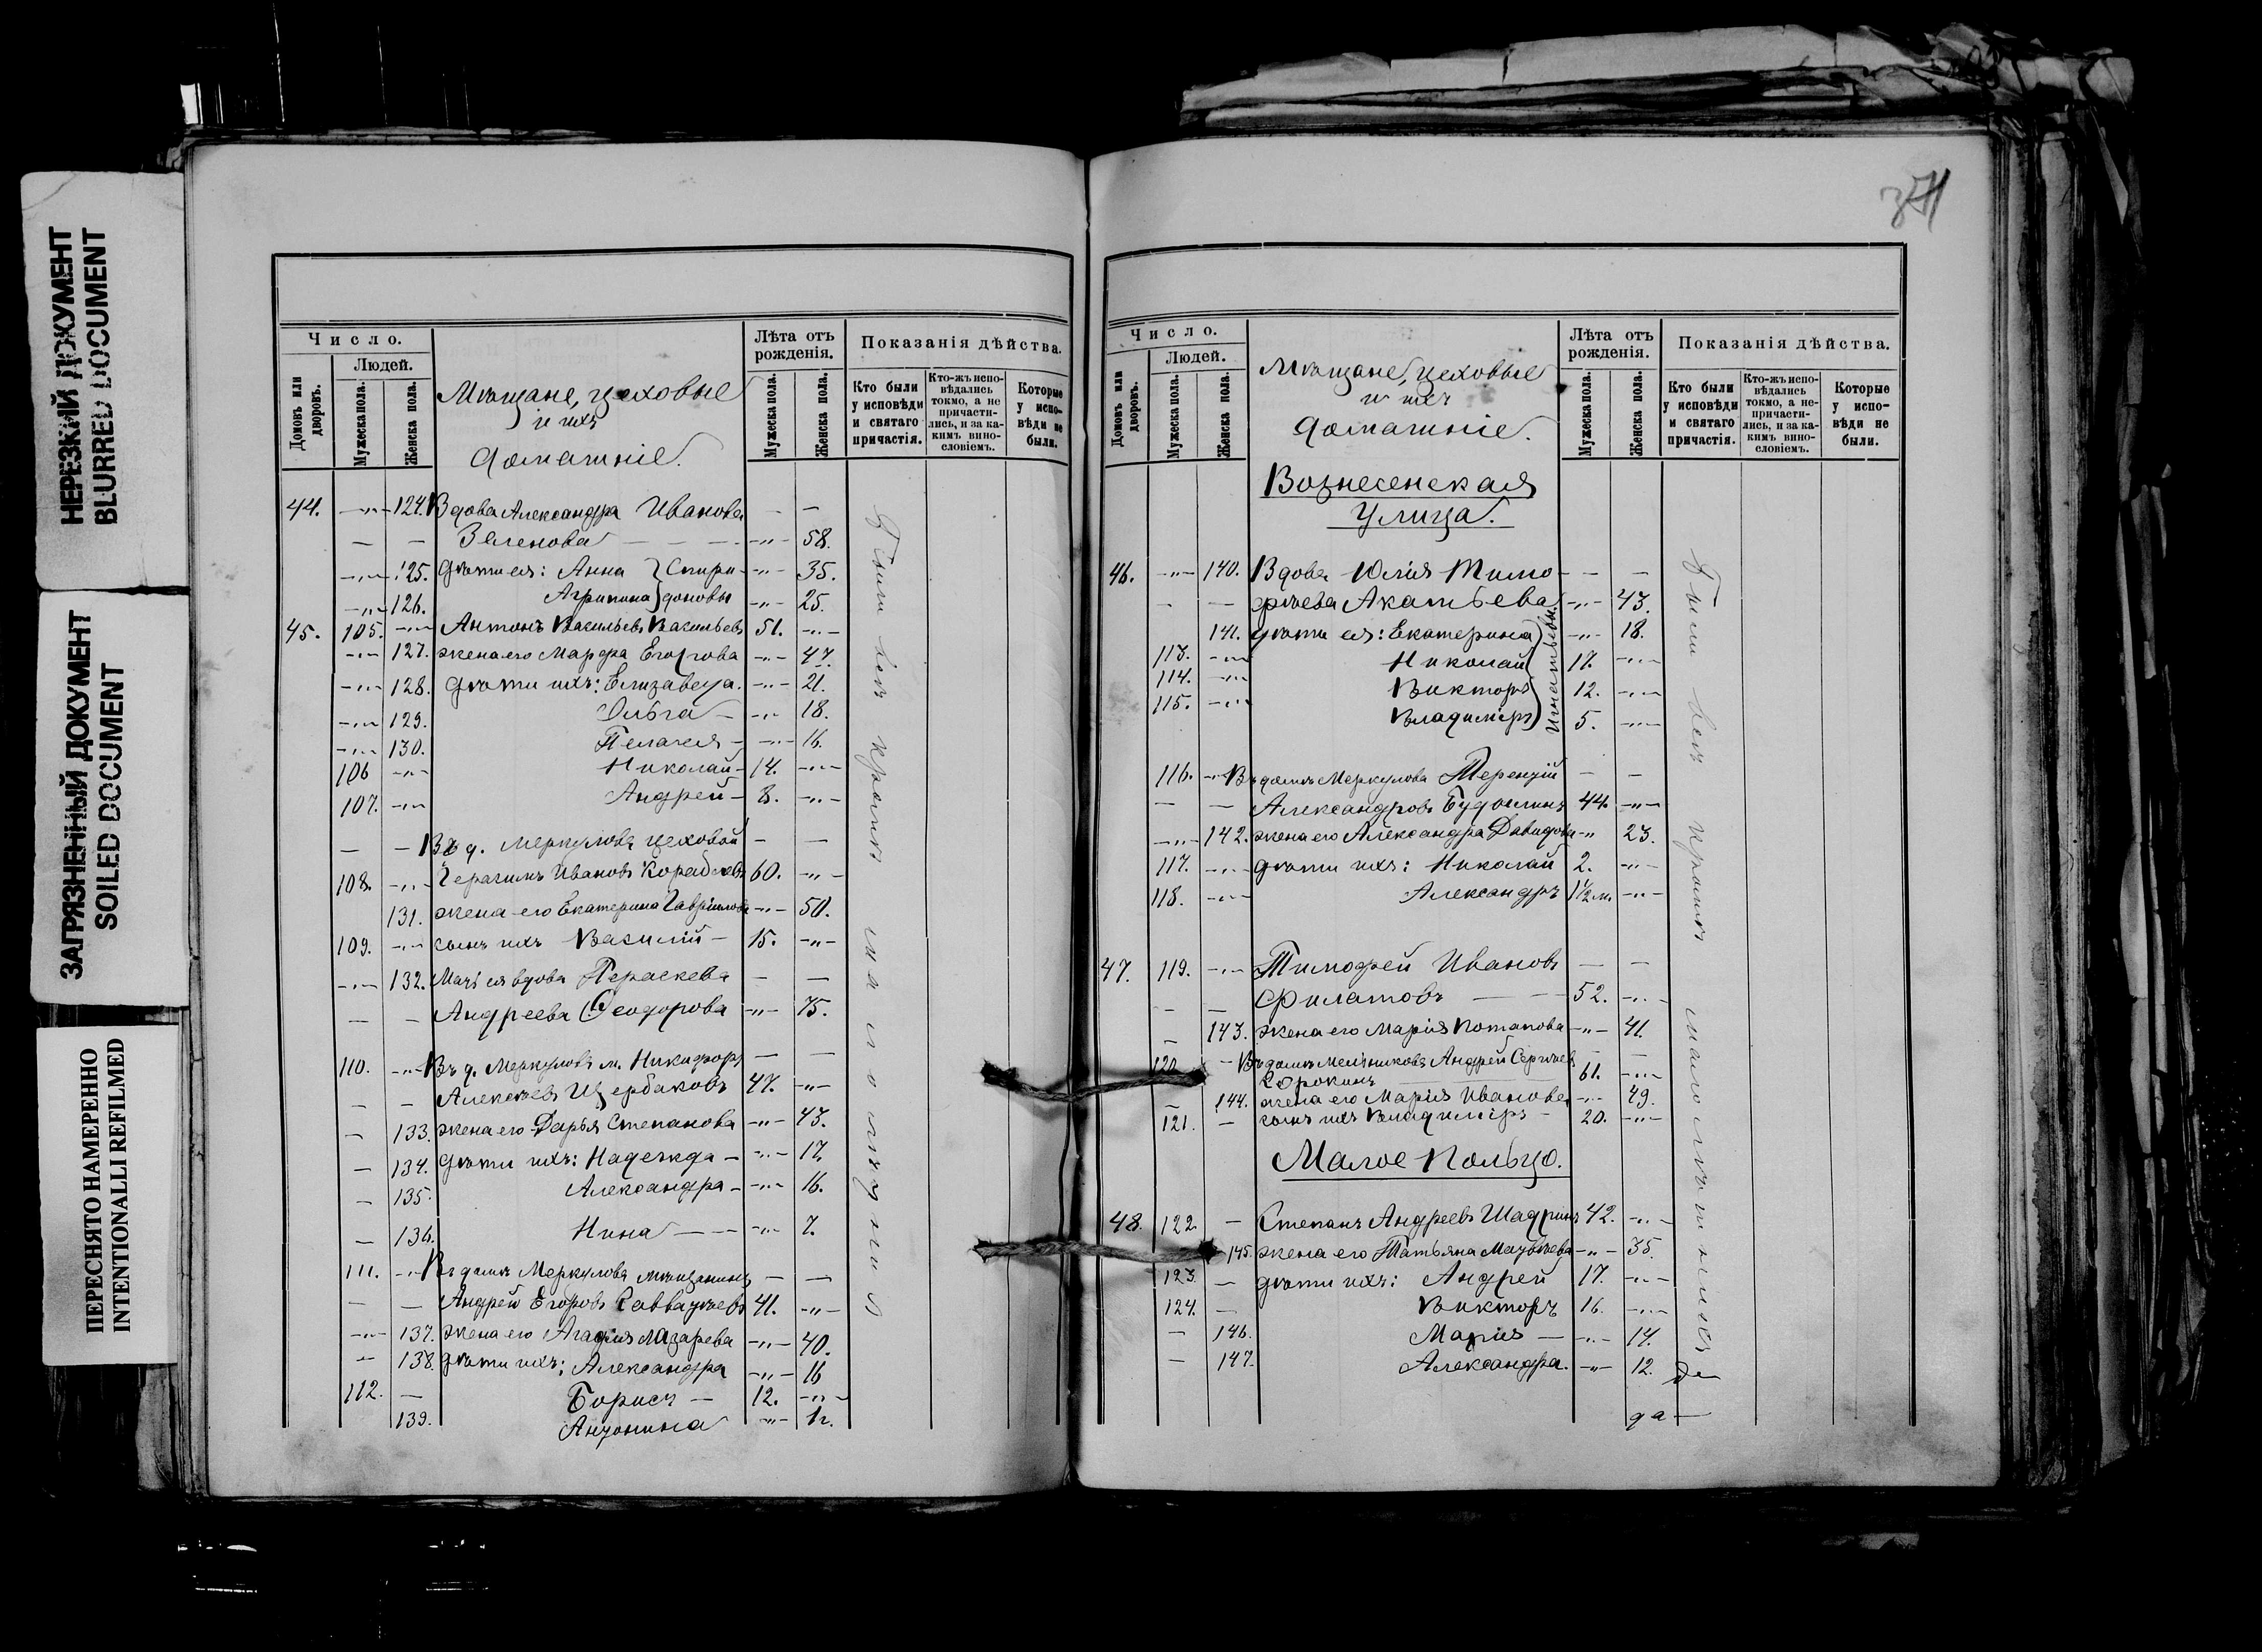 НЕРЕЗКИЙ ДОКУМЕНТ
BLURRED DOCUMENT
ЗАГРЯЗНЕННЫЙ ДОКУМЕНТ
SOILED DOCUMENT
ПЕРЕСНЯТО НАМЕРЕННО
INTENTIONALLI REFILMED
Число.
Людей.
Домовъ или дворовъ.
Мужеска пола.
Женска пола.
Мѣщане, цеховые
и ихъ
домашніе.
Лѣта отъ рожденія.
Мужеска пола.
Женска пола.
Показанія дѣйства.
Кто были у исповѣди и святаго причастія.
Кто-жъ исповѣдались токмо, а не причастились, и за какимъ винословіемъ.
Которые у исповѣди не были.
44. -"- 124. Вдова Александра Иванова — —
— — Зеленова — — — -"- 58.
-"- 125. дѣти ея: Анна } Спири- -"- 35.
-"- 126. Агрипина } доновы -"- 25.
45. 105. -"- Антонъ Васильевъ Васильевъ 51. -"-
-"- 127. жена его Марфа Егорова -"- 47.
-"- 128. дѣти ихъ: Елизавета. -"- 21.
-"- 129. Ольга — -"- 18.
-"- 130. Пелагея — -"- 16.
106 -"- Николай — 14. -"-
107. -"- Андрей — 8. -"-
— — Въ д. Меркулова цеховой — —
108. -"- Герасимъ Ивановъ Кораблевъ 60. -"-
131. жена его Екатерина Гавріилова -"- 50.
109. -"- сынъ ихъ Василій — 15. -"-
-"- 132. Мать ея вдова Параскева — —
— — Андреева Ѳеодорова -"- 75.
110. -"- Въ д. Меркулова м. Никифоръ — —
— — Алексѣевъ Щербаковъ 47. -"-
— 133. жена его Дарья Степанова -"- 43.
— 134. дѣти ихъ: Надежда — -"- 17.
— 135. Александра — -"- 16.
— 136. Нина — — -"- 7.
111. -"- Въ домѣ Меркулова мѣщанинъ — —
— — Андрей Егоровъ Савватѣевъ 41. -"-
-"- 137. жена его Агафія Лазарева -"- 40.
-"- 138. дѣти ихъ: Александра -"- 16
112. — Борисъ — 12. -"-
139. Антонина -"- 1 г.
Были всѣ кромѣ малолѣтнихъ
Число.
Людей.
Домовъ или дворовъ.
Мужеска пола.
Женска пола.
Мѣщане, цеховые
и ихъ
домашніе.
Лѣта отъ рожденія.
Мужеска пола.
Женска пола.
Показанія дѣйства.
Кто были у исповѣди и святаго причастія.
Кто-жъ исповѣдались токмо, а не-причастились, и за какимъ винословіемъ.
Которые у исповѣди не были.
Вознесенская
Улица.
46. -"- 140. Вдова Юлія Тимо- — —
— — фѣева Акатьева -"- 43.
141. дѣти ея: Екатерина -"- 18.
113. -"- Николай 17. -"-
114. -"- Викторъ 12. -"-
115. -"- Владиміръ 5. -"-
Игнатьевы.
116. -"- Въ домѣ Меркулова Терентій — —
— — Александровъ 44. -"-
-"- 142. жена его Александра Давидова -"- 23.
117. -"- дѣти ихъ: Николай 2. -"-
118. -"- Александръ 1½ м. -"-
47. 119. -"- Тимофей Ивановъ — —
— — Филатовъ — — 52. -"-
— 143. жена его Марія Потапова -"- 41.
120. — Въ домѣ Мельникова Андрей Сергѣевъ — —
Сорокинъ 61. -"-
— 144. жена его Марія Иванова -"- 49.
121. — сынъ ихъ Владиміръ — 20. -"-
Малое Кольцо.
48. 122. — Степанъ Андреевъ Шадринъ 42. -"-
145. жена его Татьяна Матвѣева -"- 35.
123. — дѣти ихъ: Андрей 17. -"-
124. — Викторъ 16. -"-
— 146. Марія — -"- 14.
— 147. Александра. -"- 12.
Были всѣ кромѣ малолѣтнихъ